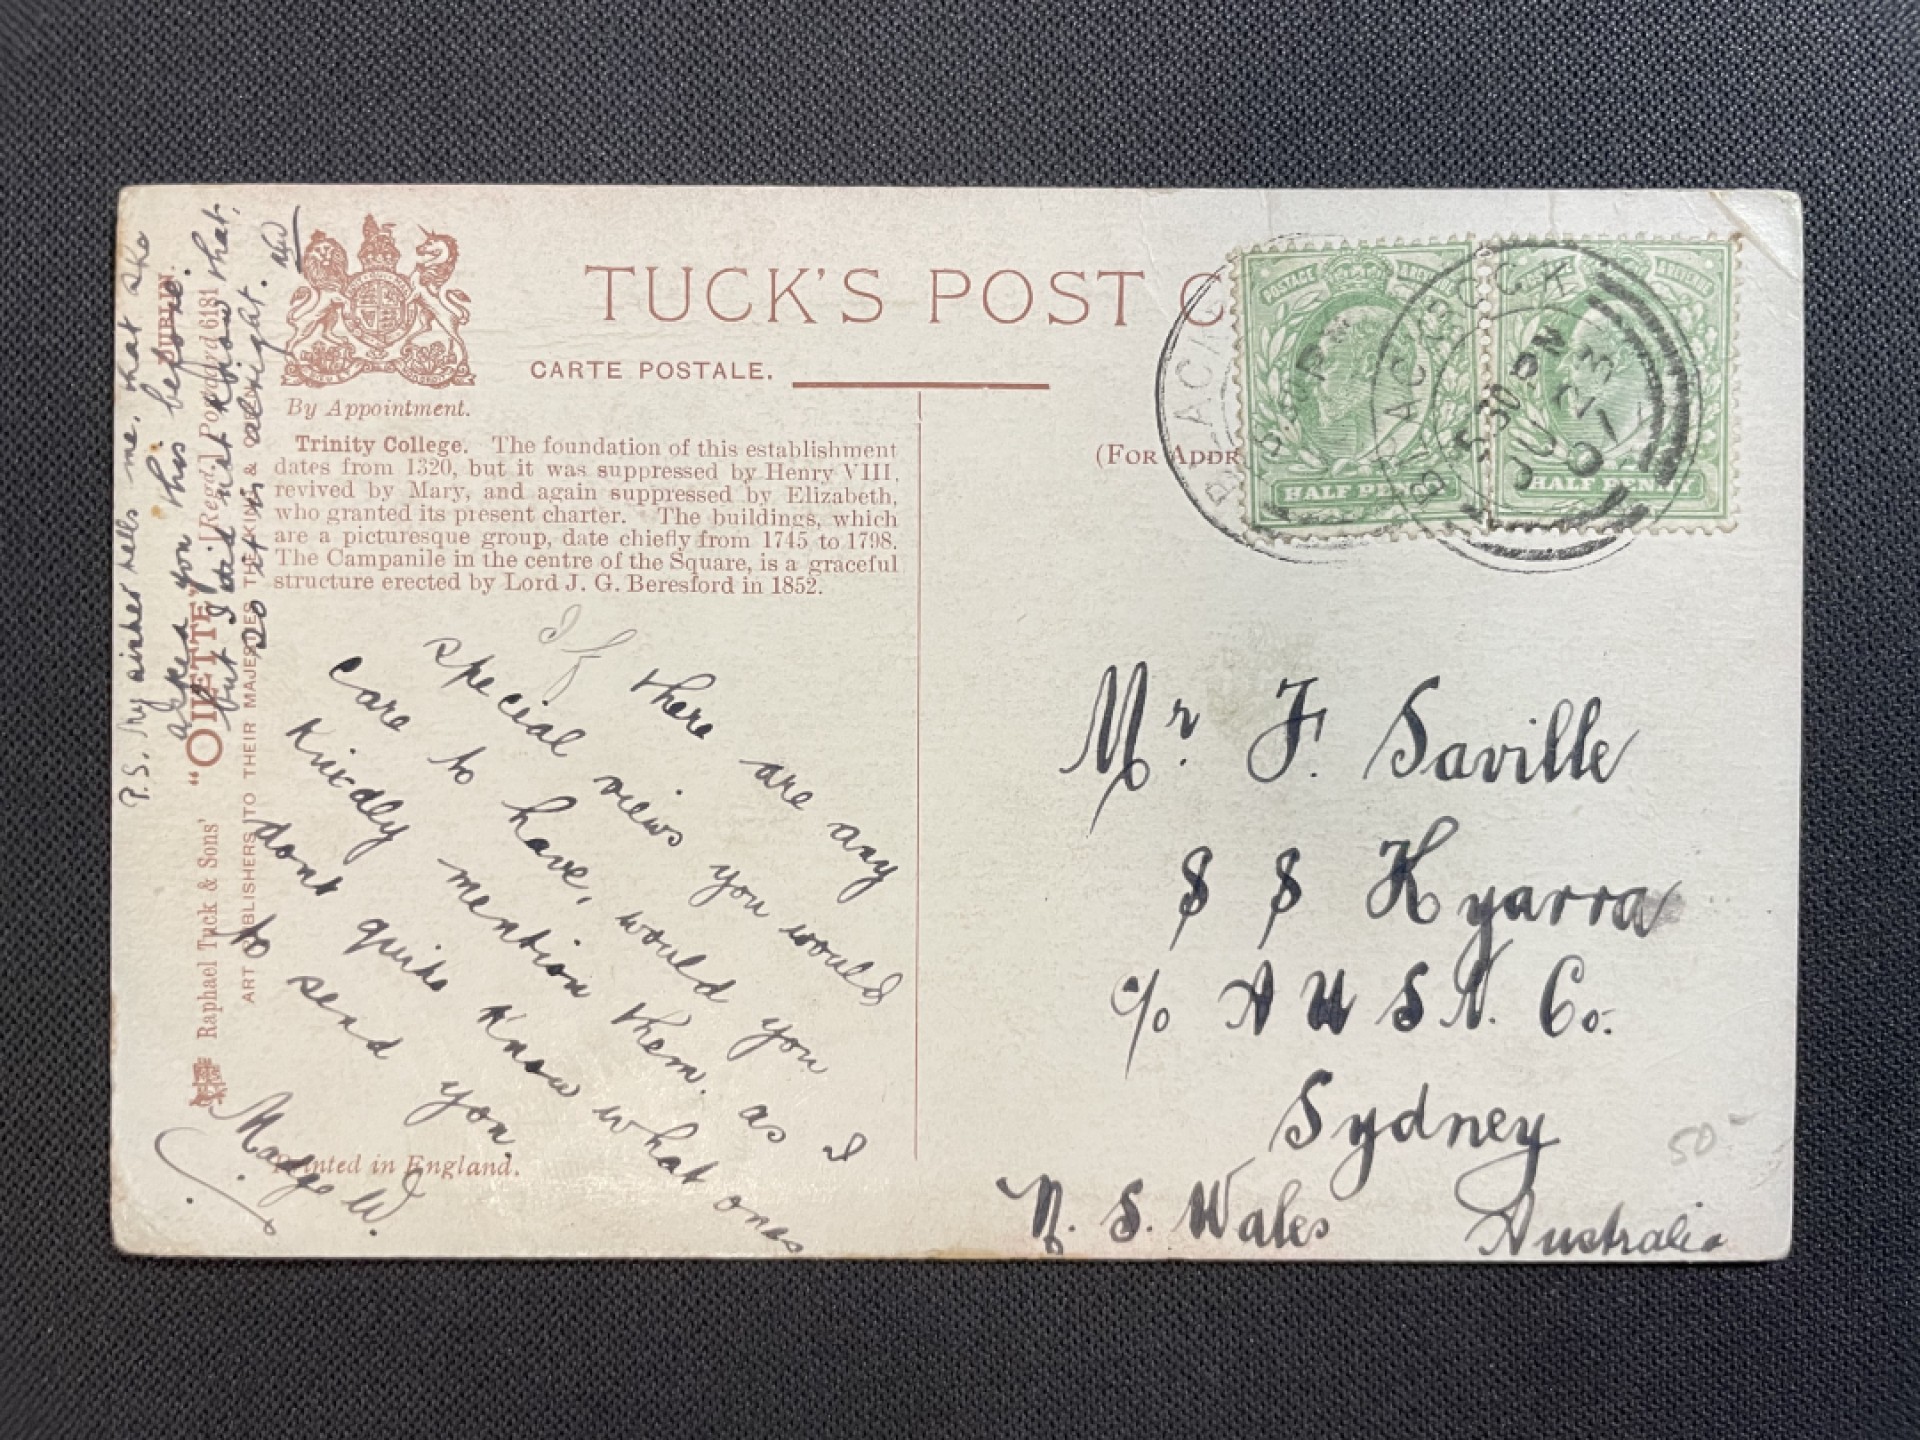 TUCK'S POST C
CARTE POSTALE.
By Appointment.
(FOR ADDR
Trinity College. The foundation of this establishment
dates from 1320, but it was suppressed by Henry VIII,
revived by Mary, and again suppressed by Elizabeth,
who granted its present charter. The buildings, which
are a picturesque group, date chiefly from 1745 to 1798.
The Campanile in the centre of the Square, is a graceful
structure erected by Lord J. G. Beresford in 1852.
If there are any
special views you would
care to have, would you
kindly mention them. as I
dont quite know what ones
to send you.
Madge W.
Printed in England.
P.S. My sister tells me, that she
asked you this before.
but I did not know that,
so it is allright. MW
DUBLIN.
Raphael Tuck & Sons' "OILETTE" [Regd.] Postcard 6181
ART PUBLISHERS TO THEIR MAJESTIES THE KING & QUEEN
HALF PENNY
POSTAGE & REVENUE
HALF PENNY
BLACKROCK
5 30 PM
JU 23
07
BLACKROCK
Mr F. Saville
S S Kyarra
c/o A U S N. Co.
Sydney
N. S. Wales Australia
50